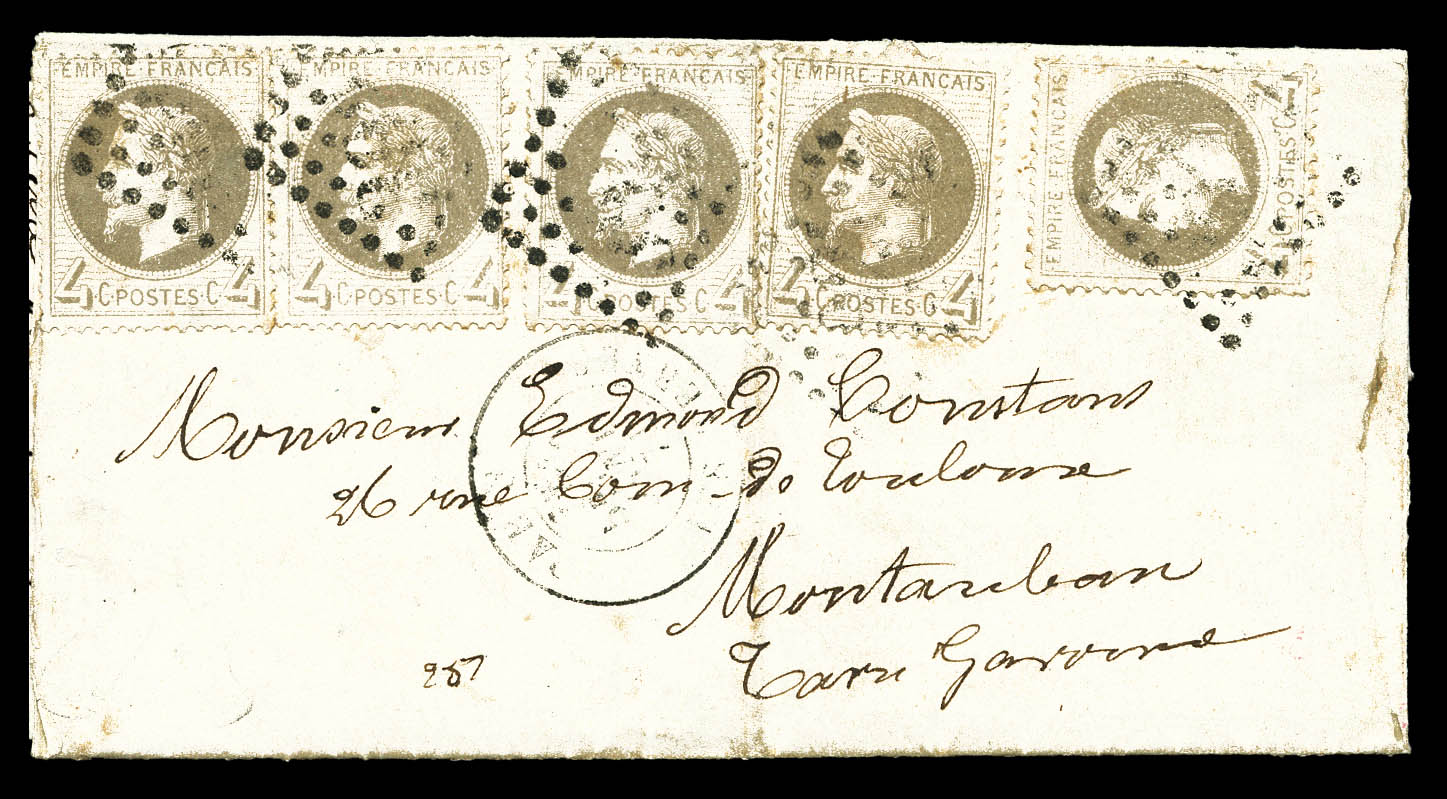 EMPIRE FRANÇAIS EMPIRE FRANÇAIS EMPIRE FRANÇAIS EMPIRE FRANÇAIS EMPIRE FRANÇAIS
4 C POSTES C 4 4 C POSTES C 4 4 C POSTES C 4 4 C POSTES C 4 4 C POSTES C 4
Monsieur Edmond Constans
26 rue Com de Toulouse
Montauban
Tarn Garonne
257